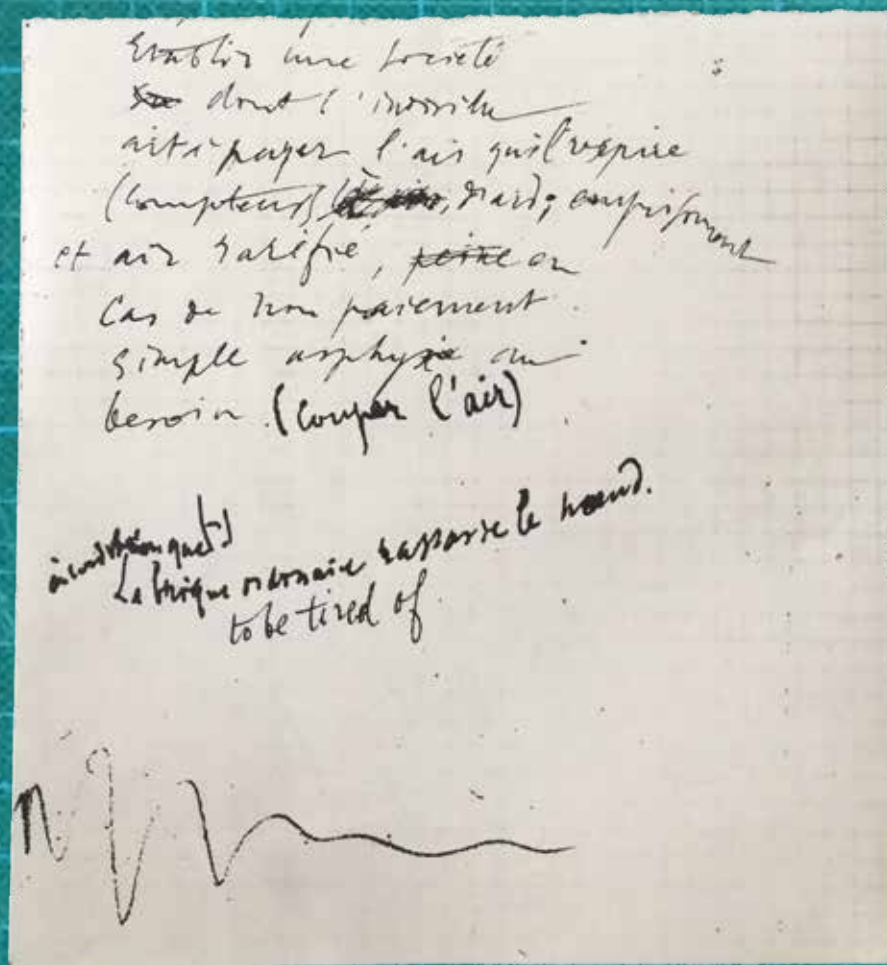 Etablir une société
dont l'individu
ait à payer l'air qu'il respire
(compteurs d'air; emprisonnement
et air raréfié, peine en
cas de non paiement
simple asphyxie au
besoin (couper l'air)
La brique ordinaire rassasie le nœud.
to be tired of